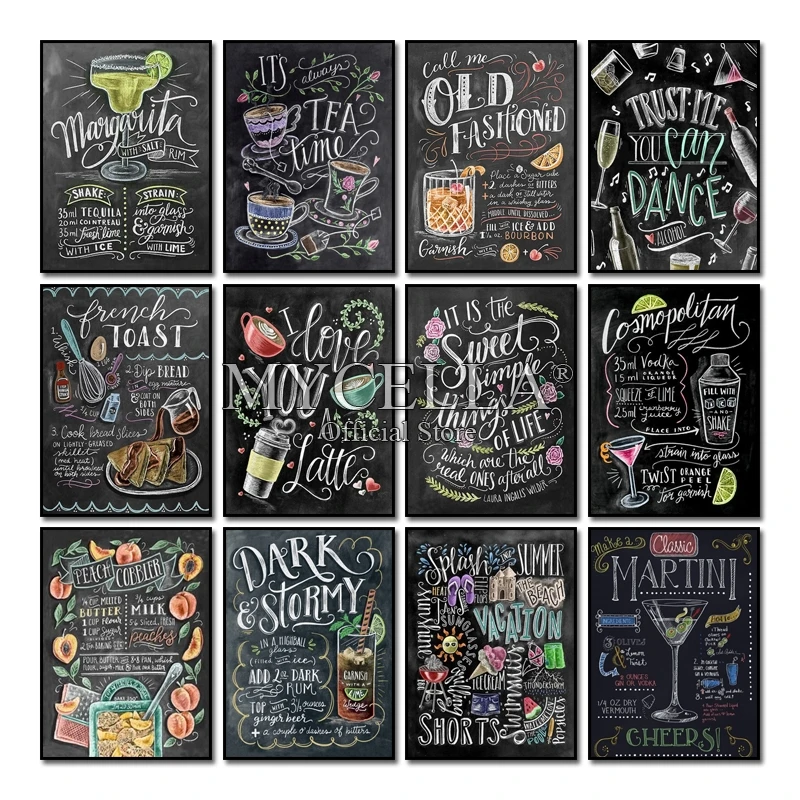 Margarita
WITH SALT RIM
SHAKE:
35ml TEQUILA
20ml COINTREAU
35ml fresh lime
WITH ICE
STRAIN:
into glass
& garnish
WITH LIME
IT'S always
TEA
time
Call me
OLD
FASHIONED
Place a Sugar cube
+ 2 dashes of BITTERS
+ a dash of Still water
in a whiskey glass
MUDDLE UNTIL DISSOLVED
Fill with ICE & ADD
1½ oz. BOURBON
Garnish
TRUST ME
YOU can
DANCE
ALCOHOL
french
TOAST
1. Whisk
2. Dip BREAD
in egg mixture
& COAT ON
BOTH
SIDES
3. Cook bread slices
ON LIGHTLY-GREASED
skillet
(med heat)
until browned
on both sides
I love
YOU
A
Latte
IT IS THE
Sweet
simple
things
OF LIFE
Which are the
real ONES after all
LAURA INGALLS WILDER
Cosmopolitan
35ml Vodka
15ml ORANGE LIQUEUR
SQUEEZE OF LIME
25ml cranberry juice
PLACE INTO
FILL WITH
ICE
AND
SHAKE
strain into glass
TWIST ORANGE
PEEL
for garnish
MYCELLA®
Official Store
PEACH COBBLER
MELTED
BUTTER
1 CUP flour
1 CUP Sugar
MILK
peaches
DARK
& STORMY
IN A HIGHBALL
glass
filled with ice
ADD 2oz DARK
RUM
TOP with 3½ ounces
ginger beer
+ a couple o' dashes of bitters
GARNISH
WITH A
LIME
Wedge
Splash
SUMMER
HEAT
FLIP
FLOPS
THE BEACH
Sunshine
VACATION
ICE CREAM
SHORTS
Swimming
POPSICLES
Make a
Classic
MARTINI
INGREDIENTS
3 OLIVES
Lemon
Twist
2 OUNCES
GIN OR VODKA
1/4 OZ. DRY
VERMOUTH
CHEERS!